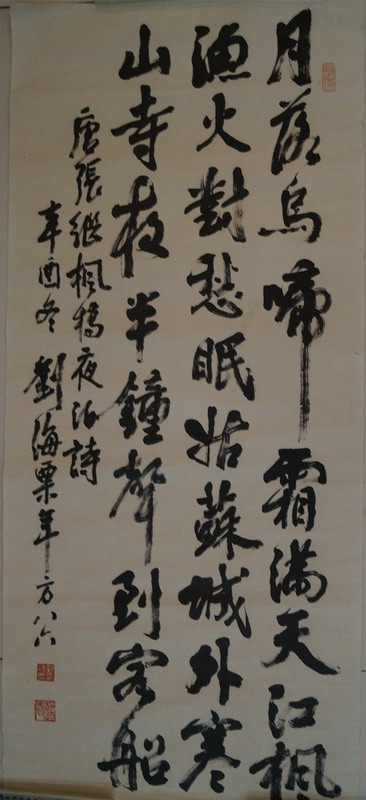 月落烏啼霜满天江枫
渔火對愁眠姑蘇城外寒
山寺夜半鐘聲到客船
唐張继枫橋夜泊詩
辛酉冬劉海粟年方八六